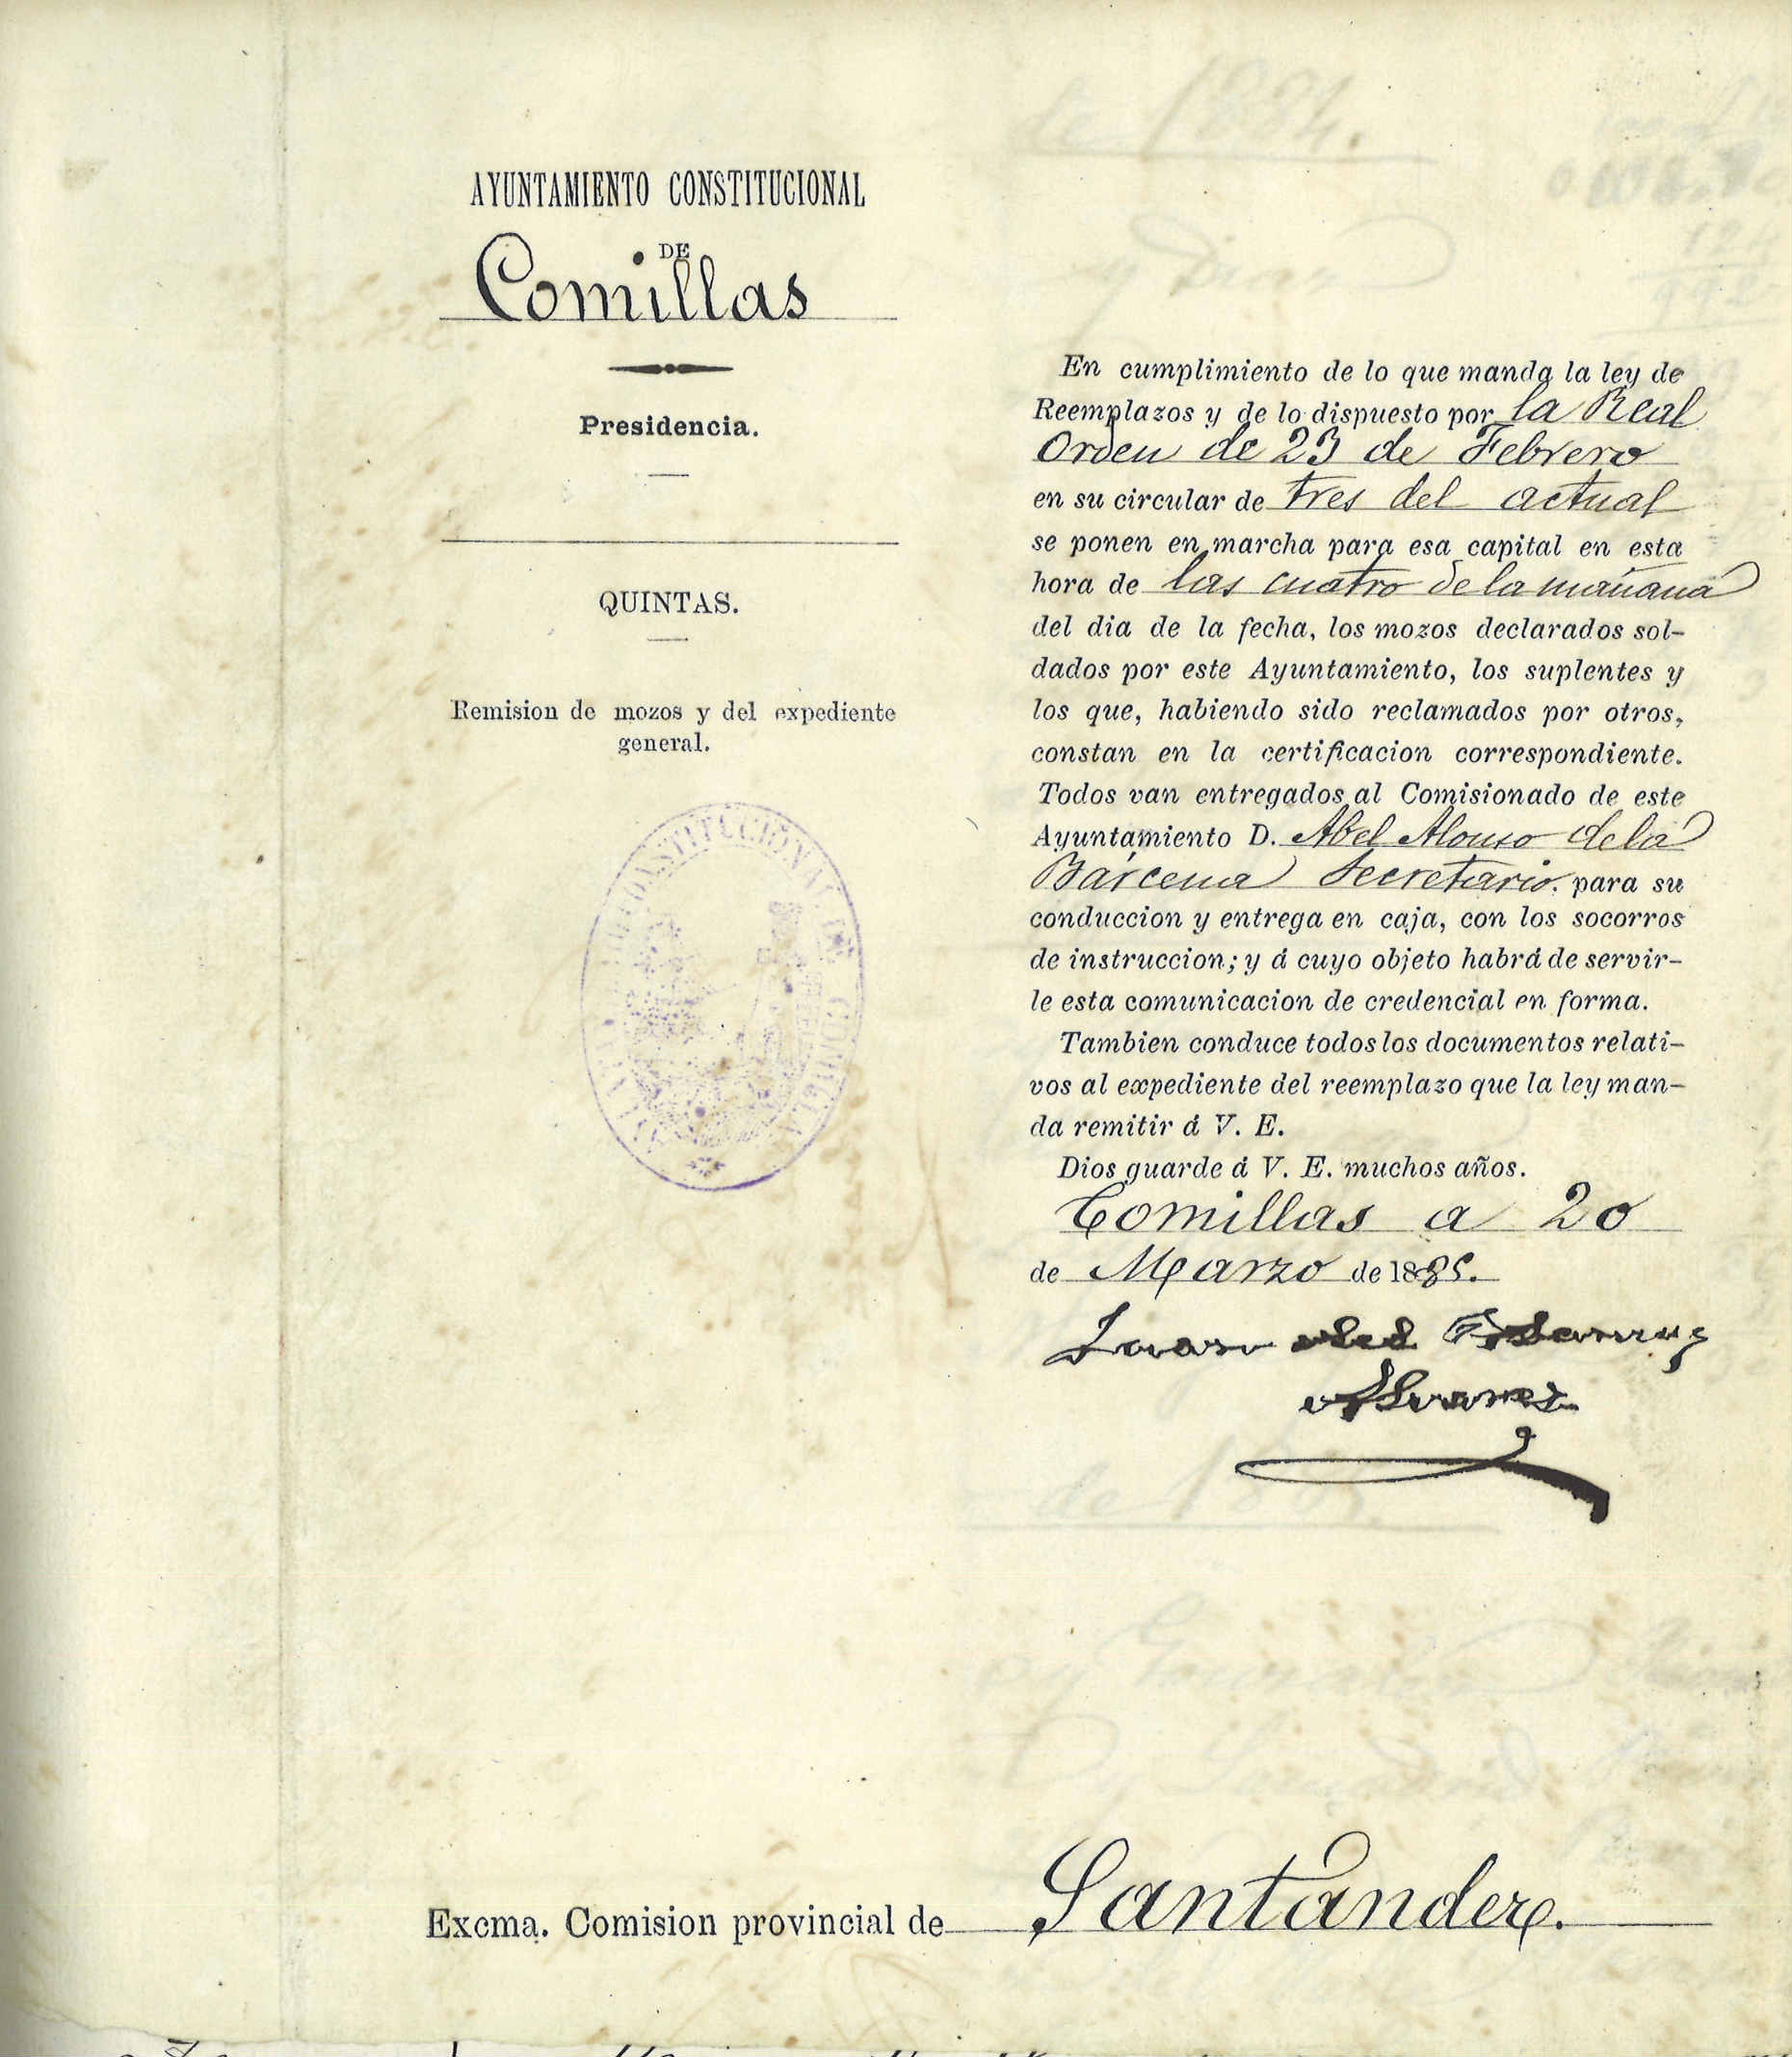 AYUNTAMIENTO CONSTITUCIONAL
DE
Comillas
Presidencia.
QUINTAS.
Remision de mozos y del expediente
general.
En cumplimiento de lo que manda la ley de
Reemplazos y de lo dispuesto por la Real
Orden de 23 de Febrero
en su circular de tres del actual
se ponen en marcha para esa capital en esta
hora de las cuatro de la mañana
del dia de la fecha, los mozos declarados sol-
dados por este Ayuntamiento, los suplentes y
los que, habiendo sido reclamados por otros,
constan en la certificacion correspondiente.
Todos van entregados al Comisionado de este
Ayuntamiento D. Abel Alonso de la
Bárcena Secretario. para su
conduccion y entrega en caja, con los socorros
de instruccion; y á cuyo objeto habrá de servir-
le esta comunicacion de credencial en forma.
Tambien conduce todos los documentos relati-
vos al expediente del reemplazo que la ley man-
da remitir á V. E.
Dios guarde á V. E. muchos años.
Comillas a 20
de Marzo de 1885.
Juan del
Alvarez
Excma. Comision provincial de Santander.